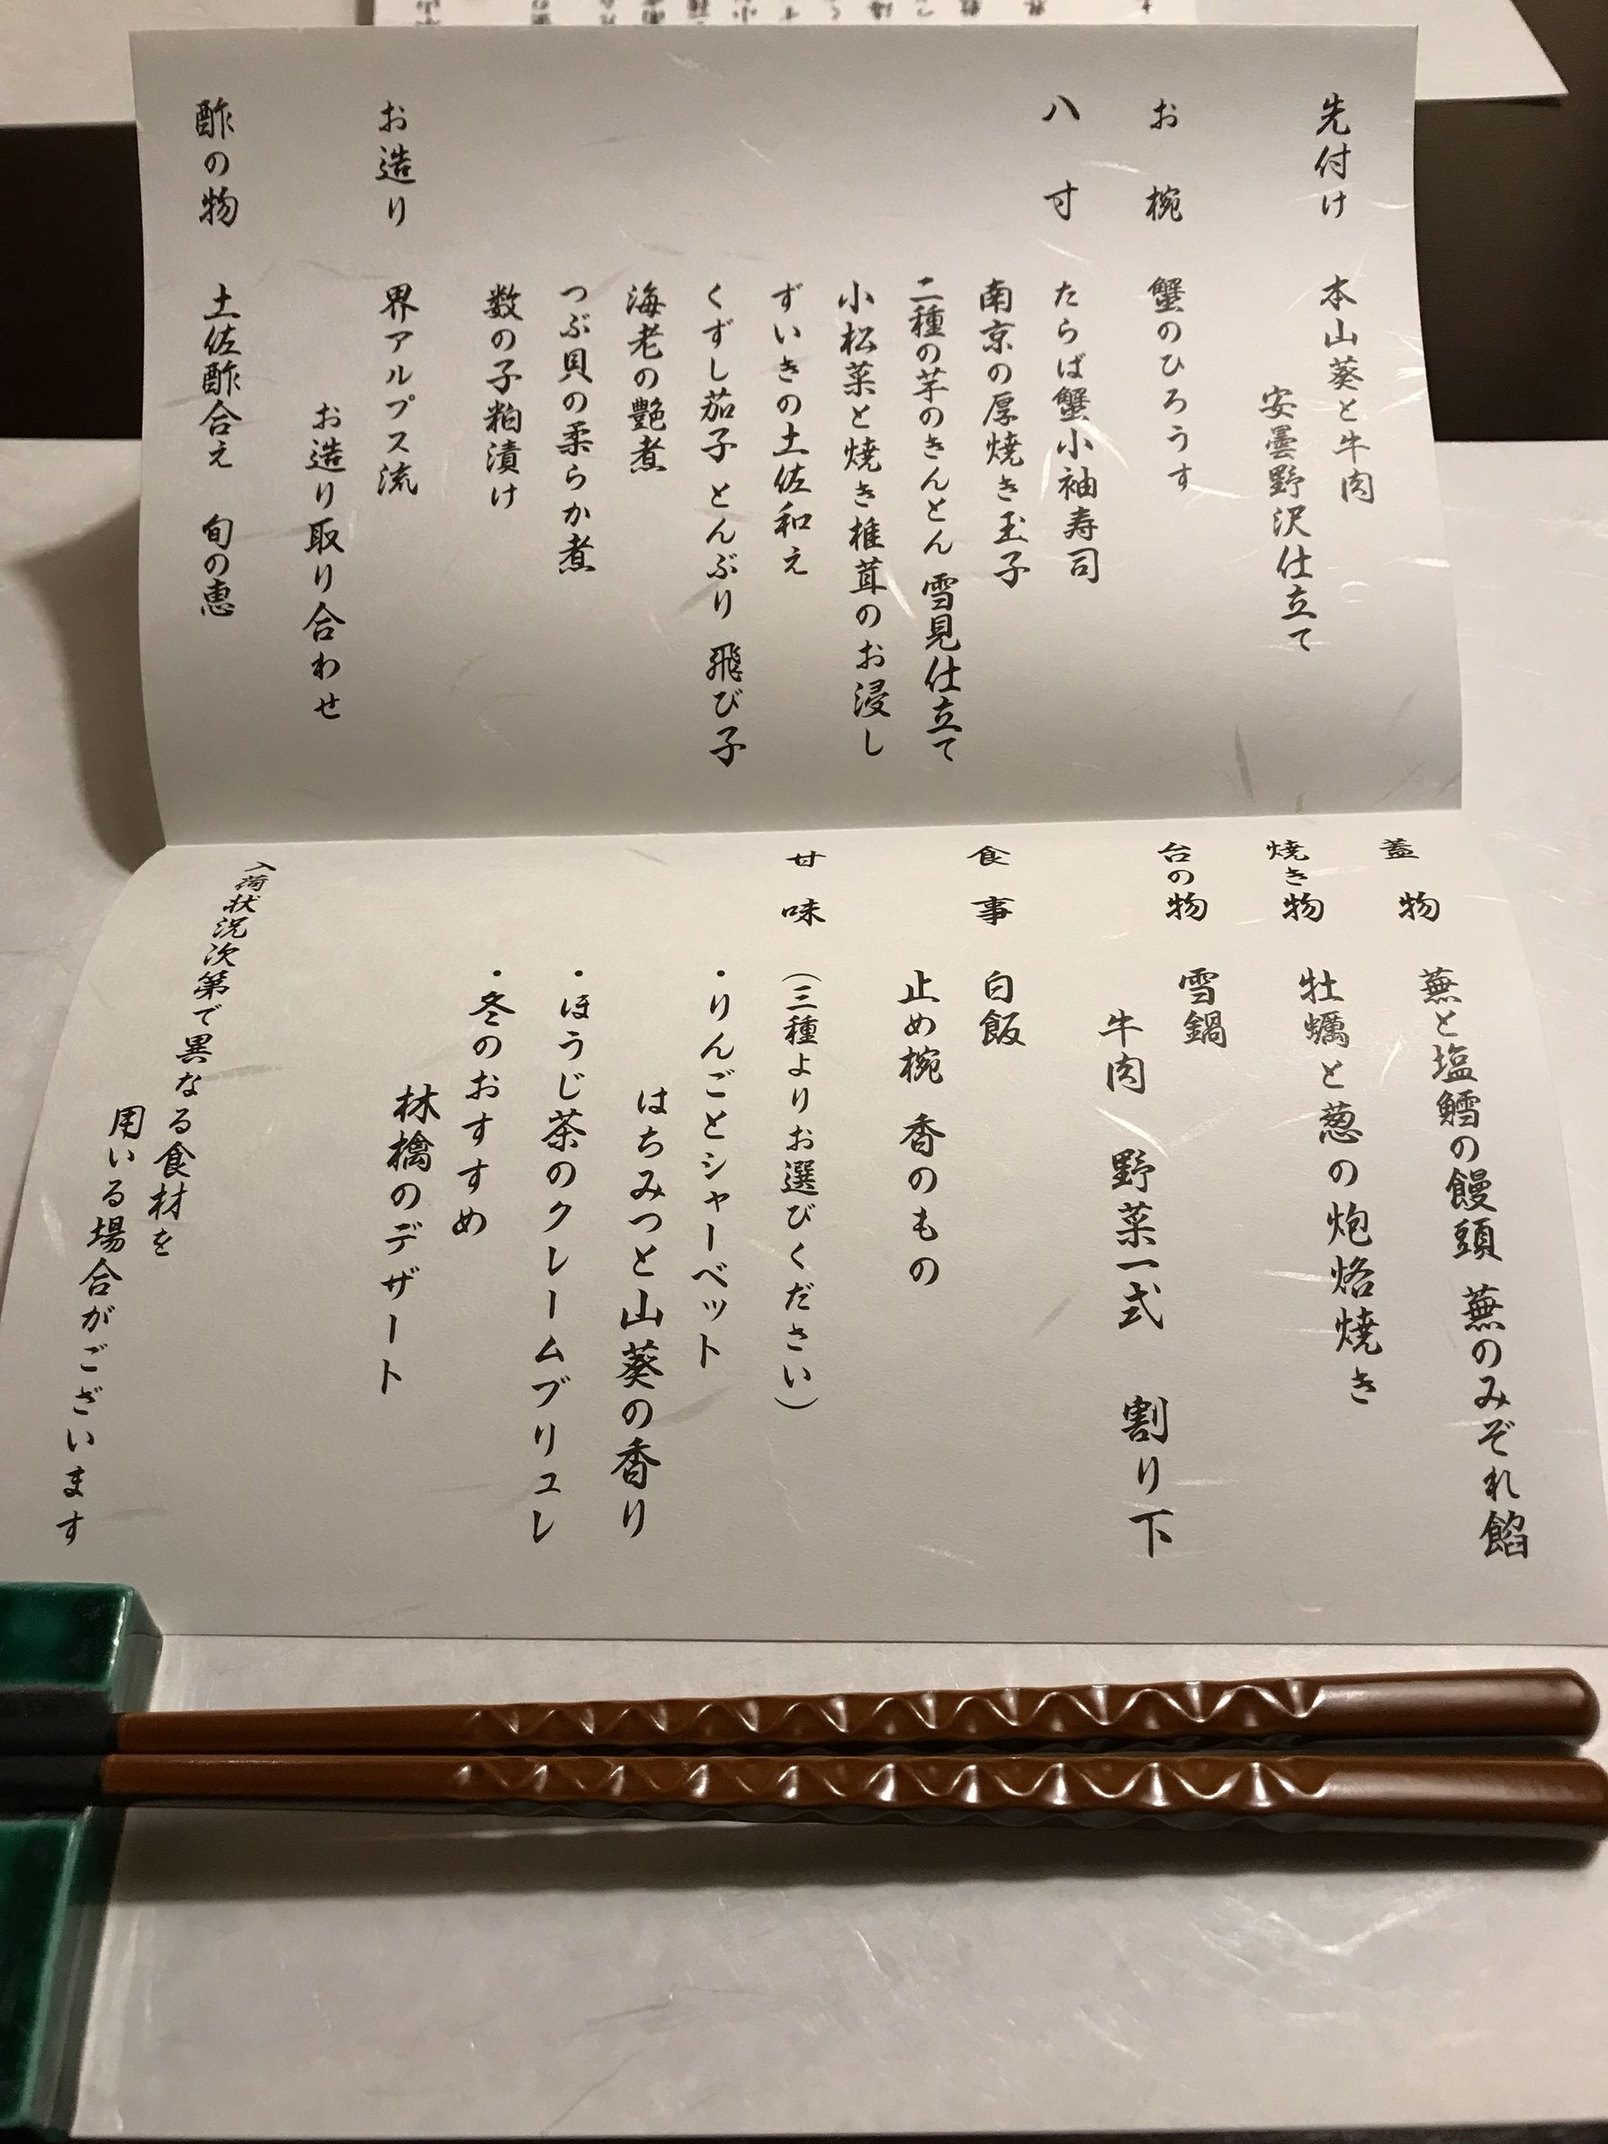 先付け 本山葵と牛肉
安曇野沢仕立て
お椀 蟹のひろうす
八寸 たらば蟹小袖寿司
南京の厚焼き玉子
二種の芋のきんとん 雪見仕立て
小松菜と焼き椎茸のお浸し
ずいきの土佐和え
くずし茄子 とんぶり 飛び子
海老の艶煮
つぶ貝の柔らか煮
数の子粕漬け
お造り 界アルプス流
お造り取り合わせ
酢の物 土佐酢合え 旬の恵
蓋物 蕪と塩鱈の饅頭 蕪のみぞれ餡
焼き物 牡蠣と葱の炮烙焼き
台の物 雪鍋
牛肉 野菜一式 割り下
食事 白飯
止め椀 香のもの
甘味 (三種よりお選びください)
・りんごとシャーベット
はちみつと山葵の香り
・ほうじ茶のクレームブリュレ
・冬のおすすめ
林檎のデザート
入荷状況次第で異なる食材を
用いる場合がございます